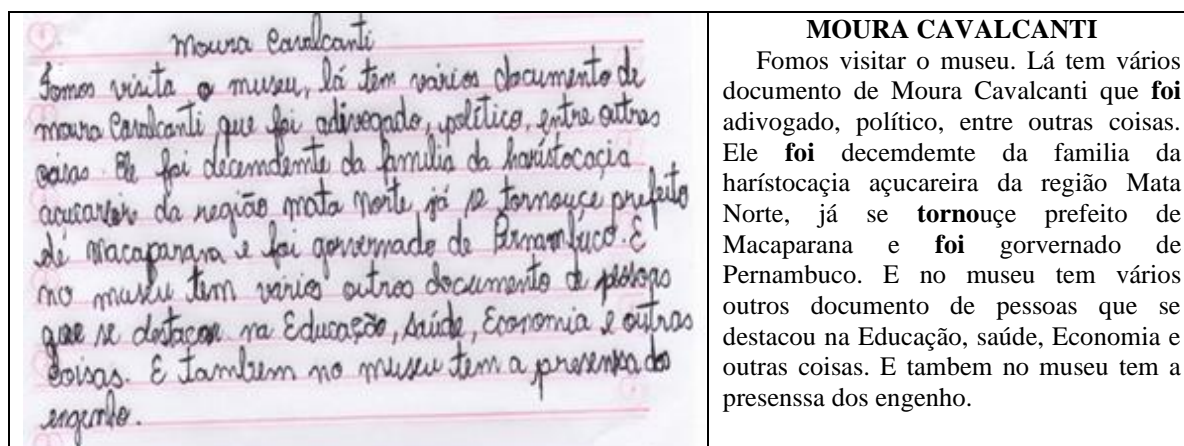 Moura Cavalcanti
Fomos visita o museu, lá tem varios documento de
moura Cavalcanti que foi adivogado, político, entre outras
coisas. Ele foi decemdemte da familia da harístocaçia
açucareira da região mata Norte, já se tornouçe prefeito
de Macaparana e foi gorvernado de Pernambuco. E
no museu tem vários outros documento de pessoas
que se destacou na Educação, saúde, Economia e outras
Coisas. E tambem no museu tem a presenssa dos
engenho.
MOURA CAVALCANTI
Fomos visitar o museu. Lá tem vários
documento de Moura Cavalcanti que foi
adivogado, político, entre outras coisas.
Ele foi decemdemte da familia da
harístocaçia açucareira da região Mata
Norte, já se tornouçe prefeito de
Macaparana e foi gorvernado de
Pernambuco. E no museu tem vários
outros documento de pessoas que se
destacou na Educação, saúde, Economia e
outras coisas. E tambem no museu tem a
presenssa dos engenho.